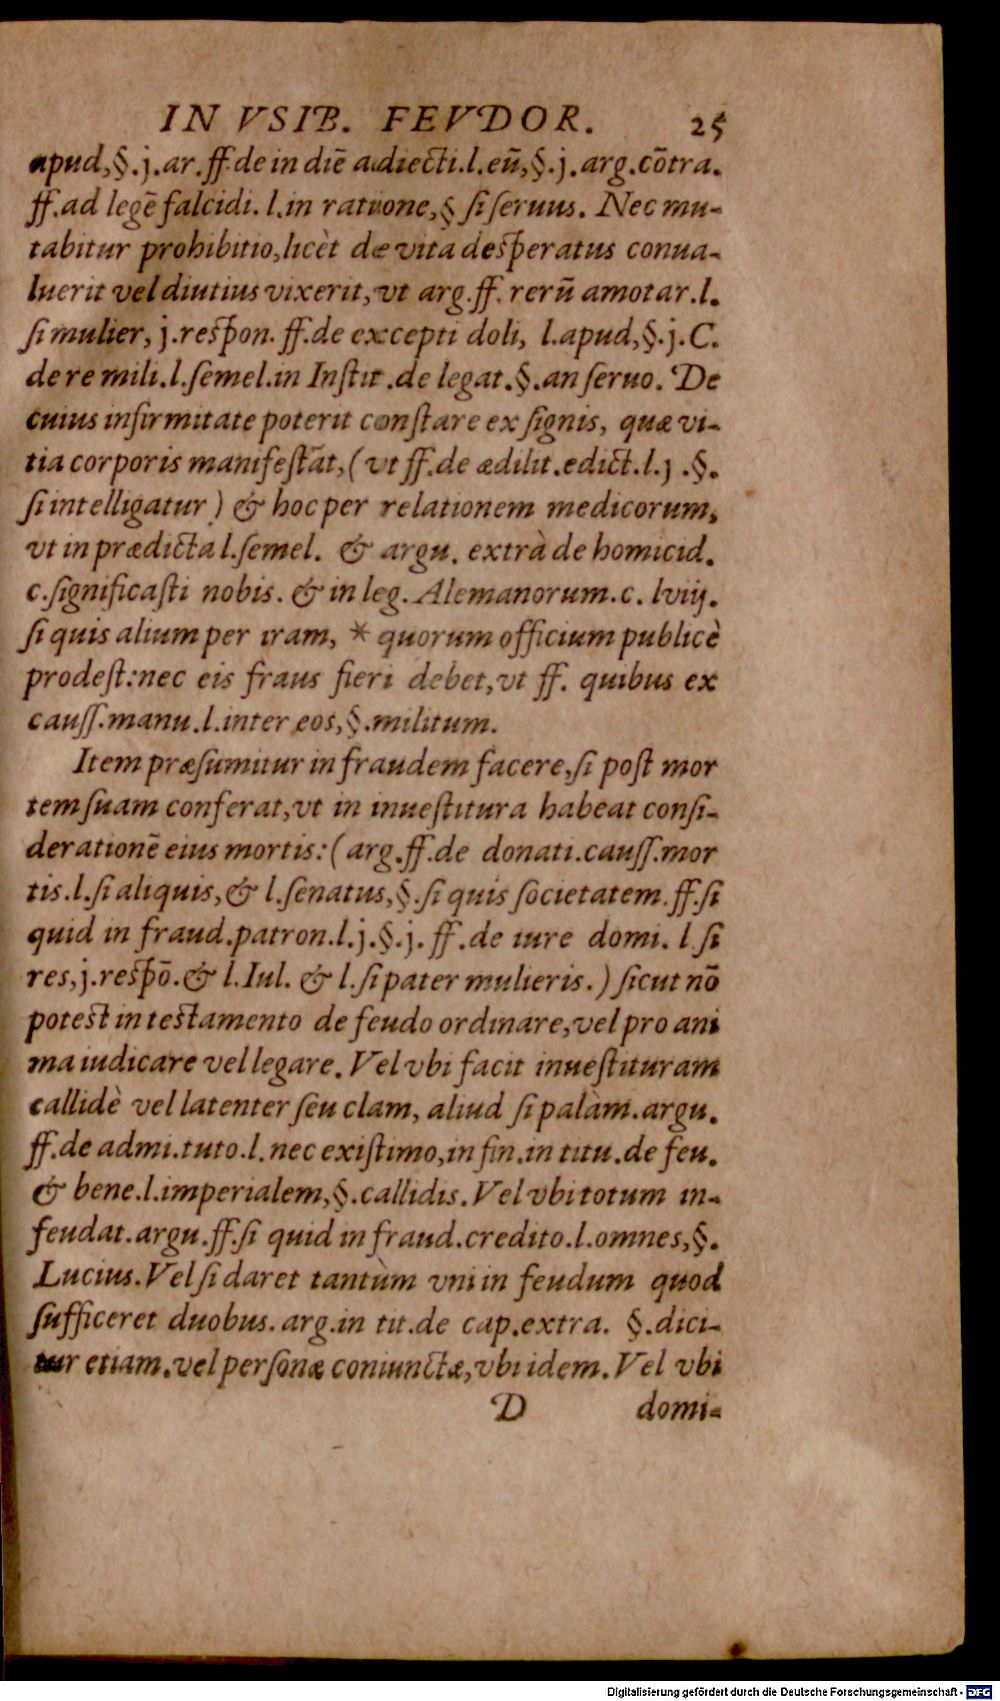 IN VSIB. FEVDOR. 25
apud,§.j.ar.ff.de in diē adiecti.l.eū,§.j.arg.cōtra.
ff.ad legē falcidi.l.in ratione,§ si seruus. Nec mu-
tabitur prohibitio,licèt de vita desperatus conua-
luerit vel diutius vixerit,vt arg.ff.rerū amotar.l.
si mulier, j.respon.ff.de excepti doli, l.apud,§.j.C.
de re mili.l.semel.in Instit.de legat.§.an seruo. De
cuius infirmitate poterit constare ex signis, quæ vi-
tia corporis manifestāt,(vt ff.de ædilit.edict.l.j.§.
si intelligatur) & hoc per relationem medicorum,
vt in prædicta l.semel. & argu. extrà de homicid.
c.significasti nobis. & in leg. Alemanorum.c. lviij.
si quis alium per iram, * quorum officium publicè
prodest:nec eis fraus fieri debet,vt ff. quibus ex
causs.manu.l.inter eos,§.militum.
Item præsumitur in fraudem facere,si post mor
tem suam conferat,vt in inuestitura habeat consi-
derationē eius mortis:(arg.ff.de donati.causs.mor
tis.l.si aliquis,& l.senatus,§.si quis societatem.ff.si
quid in fraud.patron.l.j.§.j. ff.de iure domi. l si
res,j.respō.& l.Iul. & l.si pater mulieris.) sicut nō
potest in testamento de feudo ordinare,vel pro ani
ma iudicare vel legare. Vel vbi facit inuestituram
callidè vel latenter seu clam, aliud si palàm.argu.
ff.de admi.tuto.l.nec existimo,in fin.in titu.de feu.
& bene.l.imperialem,§.callidis. Vel vbi totum in-
feudat.argu.ff.si quid in fraud.credito.l.omnes,§.
Lucius. Vel si daret tantùm vni in feudum quod
sufficeret duobus. arg.in tit.de cap.extra. §.dici-
tur etiam.vel personæ coniunctæ,vbi idem. Vel vbi
D domi-
Digitalisierung gefördert durch die Deutsche Forschungsgemeinschaft - DFG